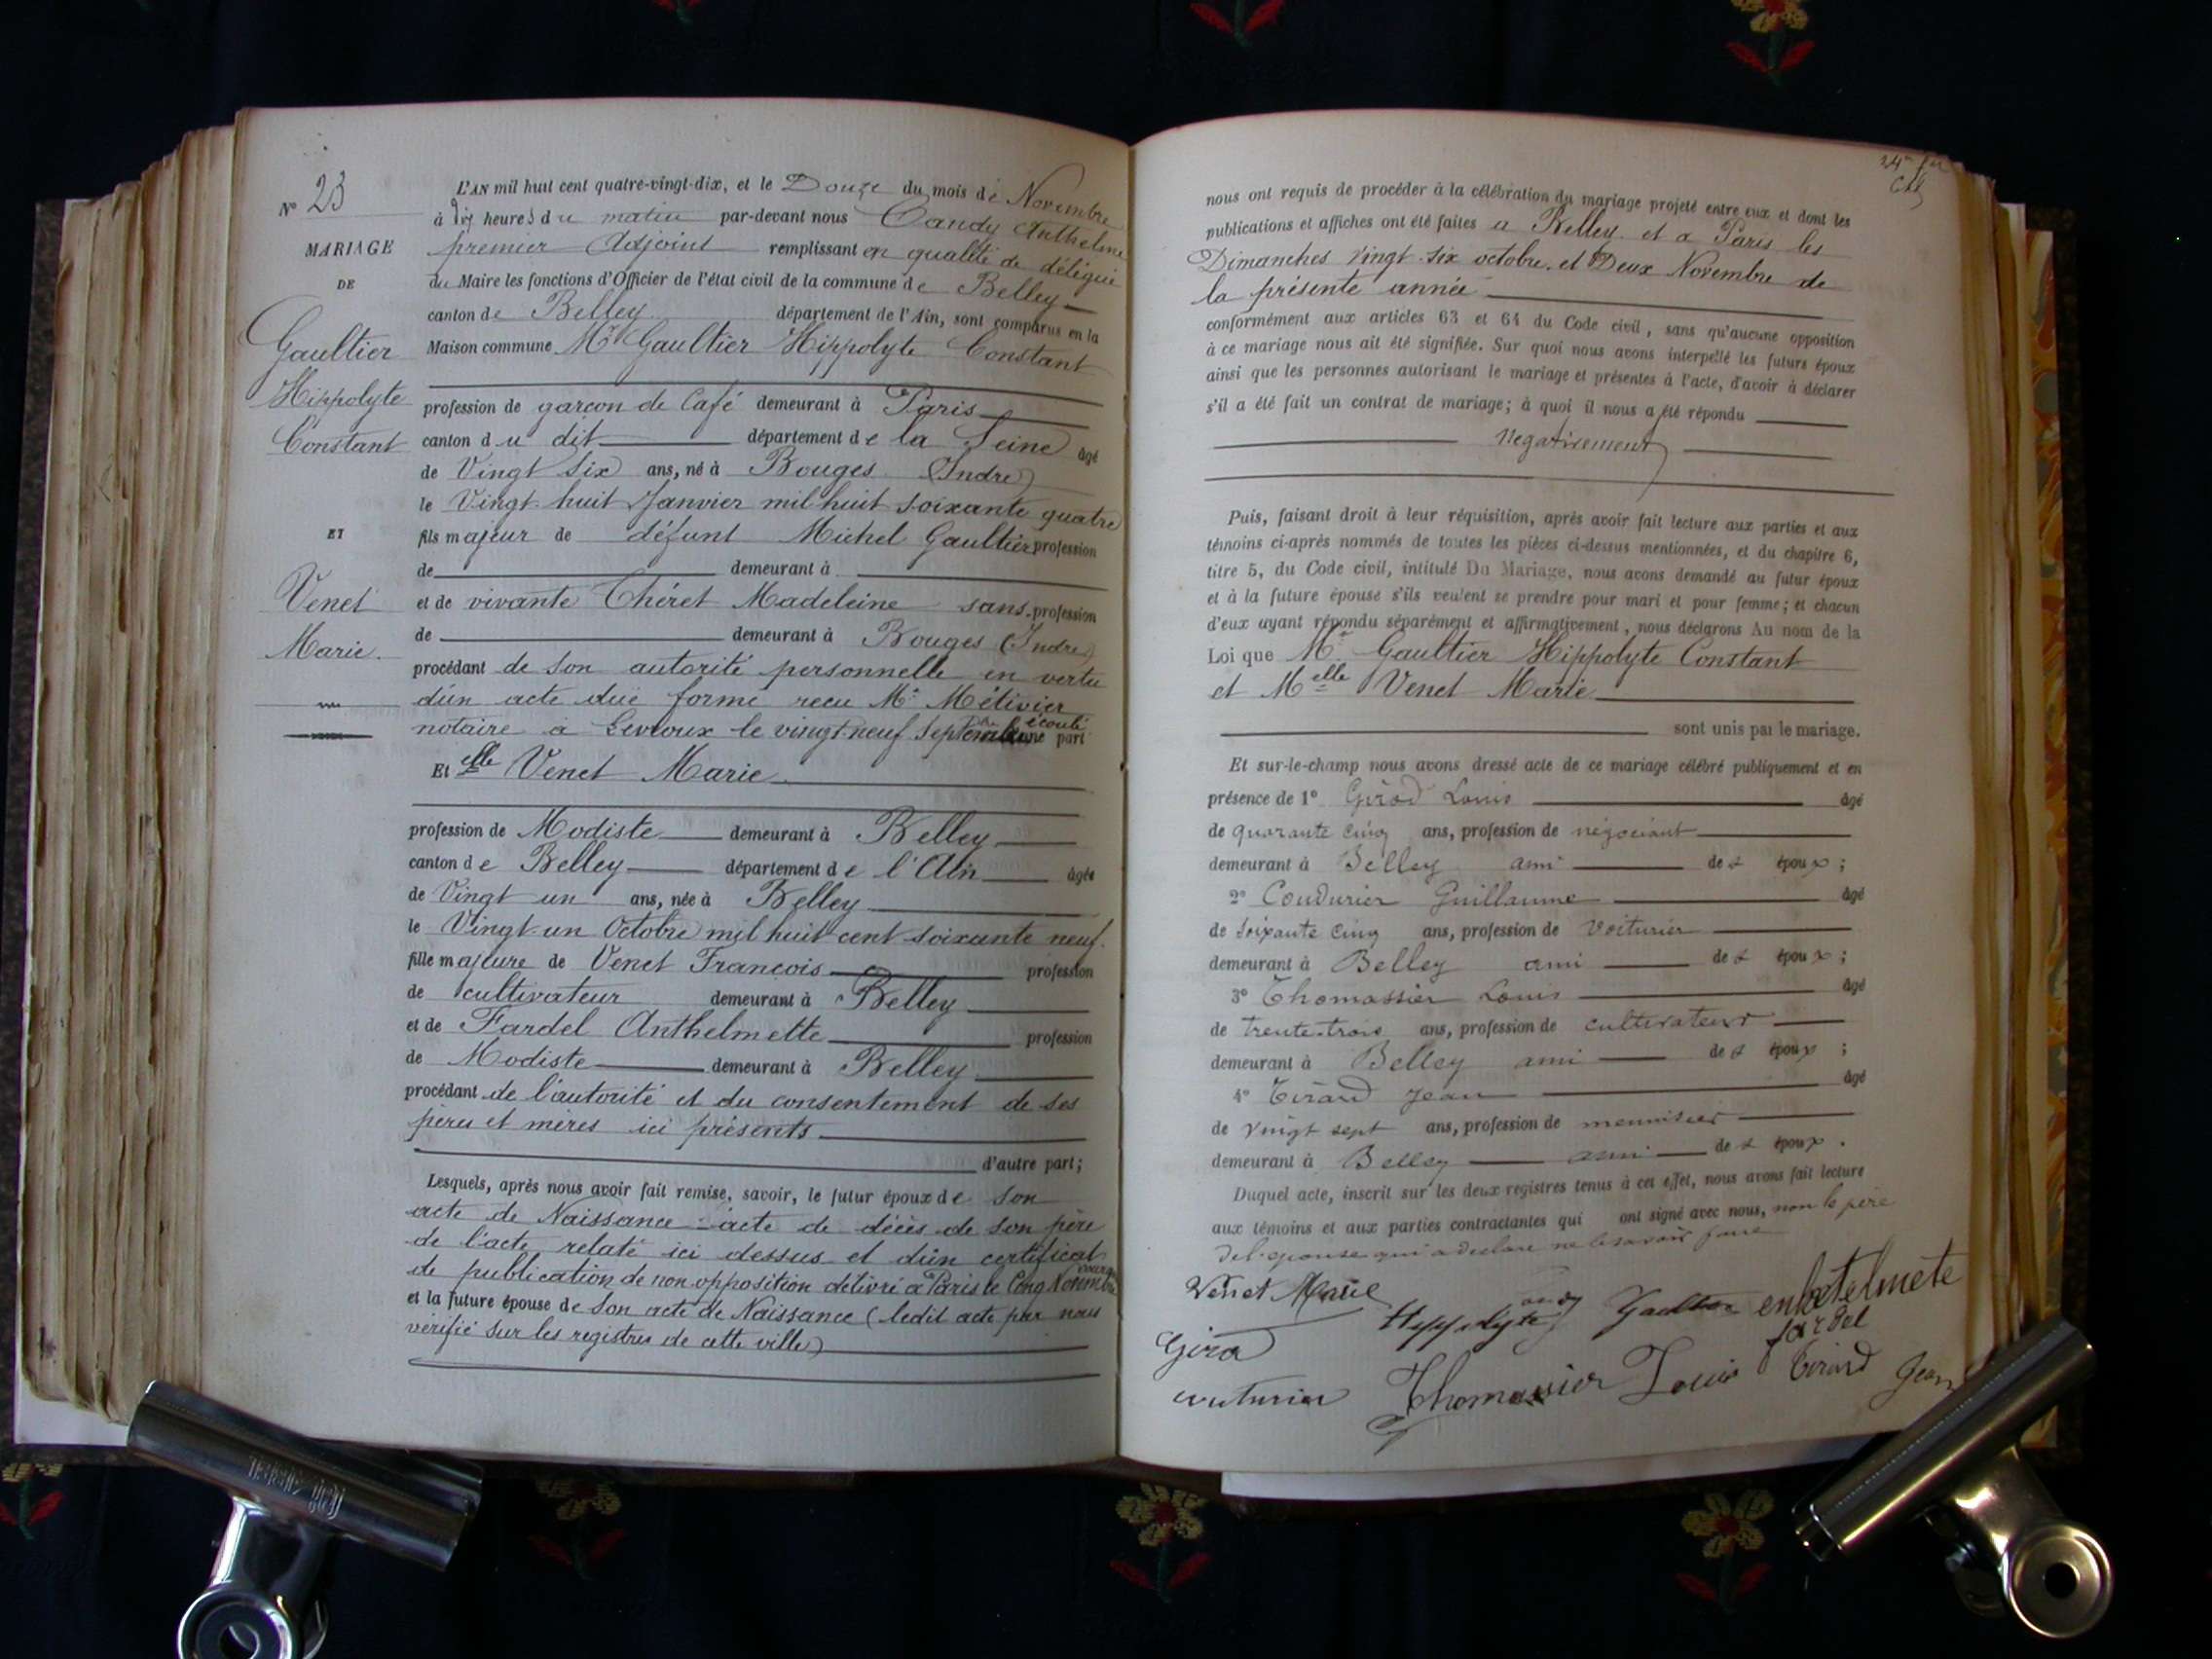 N° 23
MARIAGE
DE
Gaultier
Hippolyte
Constant
ET
Venet
Marie.
L'AN mil huit cent quatre-vingt-dix, et le Douze du mois de Novembre
à dix heures du matin par-devant nous Candy Anthelme
premier Adjoint remplissant en qualité de délégué
du Maire les fonctions d'Officier de l'état civil de la commune de Belley
canton de Belley département de l'Ain, sont comparus en la
Maison commune Mr Gaultier Hippolyte Constant
profession de garçon de Café demeurant à Paris
canton du dit département de la Seine âgé
de Vingt six ans, né à Bouges (Indre)
le Vingt huit Janvier mil huit soixante quatre
fils majeur de défunt Michel Gaultier profession
de demeurant à
et de vivante Théret Madeleine sans profession
de demeurant à Bouges (Indre)
procédant de son autorité personnelle en vertu
d'un acte due forme recu Me Métivier
notaire à Levroux le vingt-neuf Septembre écoulé une part
Et elle Venet Marie
profession de Modiste demeurant à Belley
canton de Belley département de l'Ain âgée
de Vingt un ans, née à Belley
le Vingt-un Octobre mil huit cent soixante neuf.
fille majeure de Venet Francois profession
de cultivateur demeurant à Belley
et de Fardel Anthelmette profession
de Modiste demeurant à Belley
procédant de l'autorité et du consentement de ses
pères et mères ici présents
d'autre part;
Lesquels, après nous avoir fait remise, savoir, le futur époux de son
acte de Naissance acte de décès de son père
de l'acte relaté ici dessus et d'un certificat
de publication de non opposition délivré à Paris le Cinq Novembre courant
et la future épouse de son acte de Naissance (ledit acte par nous
vérifié sur les registres de cette ville)
24
nous ont requis de procéder à la célébration du mariage projeté entre eux et dont les
publications et affiches ont été faites a Belley et a Paris les
Dimanches vingt-six octobre et Deux Novembre de
la présente année
conformément aux articles 63 et 64 du Code civil, sans qu'aucune opposition
à ce mariage nous ait été signifiée. Sur quoi nous avons interpellé les futurs époux
ainsi que les personnes autorisant le mariage et présentes à l'acte, d'avoir à déclarer
s'il a été fait un contrat de mariage; à quoi il nous a été répondu
negativement
Puis, faisant droit à leur réquisition, après avoir fait lecture aux parties et aux
témoins ci-après nommés de toutes les pièces ci-dessus mentionnées, et du chapitre 6,
titre 5, du Code civil, intitulé Du Mariage, nous avons demandé au futur époux
et à la future épouse s'ils veulent se prendre pour mari et pour femme; et chacun
d'eux ayant répondu séparément et affirmativement, nous déclarons Au nom de la
Loi que Mr Gaultier Hippolyte Constant
et Melle Venet Marie
sont unis par le mariage.
Et sur-le-champ nous avons dressé acte de ce mariage célébré publiquement et en
présence de 1° Girod Louis âgé
de quarante cinq ans, profession de négociant
demeurant à Belley ami des époux;
2° Coudurier Guillaume âgé
de soixante cinq ans, profession de voiturier
demeurant à Belley ami des époux;
3° Thomassier Louis âgé
de trente-trois ans, profession de cultivateur
demeurant à Belley ami des époux;
4° Tirard Jean âgé
de vingt sept ans, profession de menuisier
demeurant à Belley ami des époux.
Duquel acte, inscrit sur les deux registres tenus à cet effet, nous avons fait lecture
aux témoins et aux parties contractantes qui ont signé avec nous, non le père
de l'epouse qui a declare ne le savoir faire
Venet Marie
Hyppolyte Gaultier enbetelmete
fardel
Giro
Thomassier Louis Tirard Jean